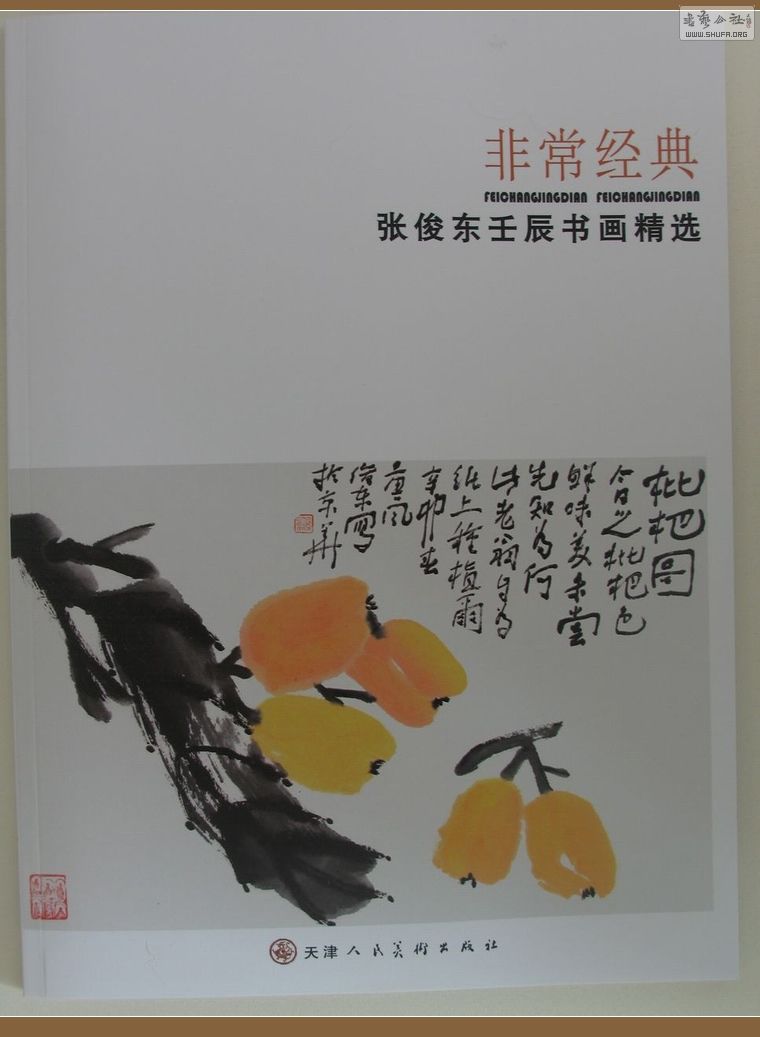 書藝公社
WWW.SHUFA.ORG
非常经典
FEICHANGJINGDIAN FEICHANGJINGDIAN
张俊东壬辰书画精选
枇杷图
今日之枇杷色
鲜味美未尝
先知为何
此老翁自为
纸上种植尔
辛卯春
唐风
俊东写
於京华
天津人民美術出版社